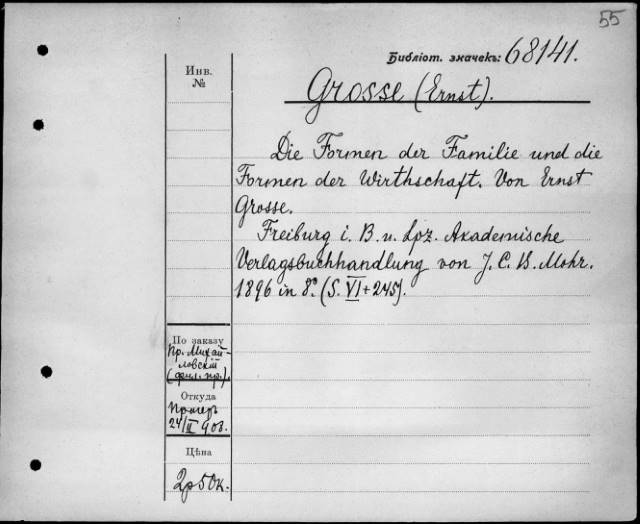 55
Библіот. значекъ: 68141.
Инв.
№
Grosse (Ernst).
Die Formen der Familie und die
Formen der Wirthschaft. Von Ernst
Grosse.
Freiburg i. B. u. Lpz. Akademische
Verlagsbuchhandlung von J. C. B. Mohr.
1896 in 8°. (S. VI + 245).
По заказу
Пр. Михай-
ловскій
Откуда
24/II 903.
Цѣна
2р50к.